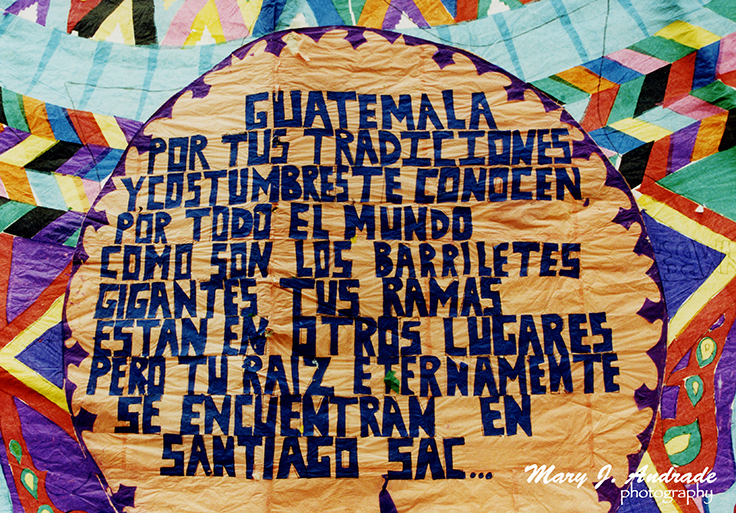 GUATEMALA
POR TUS TRADICIONES
Y COSTUMBRES TE CONOCEN,
POR TODO EL MUNDO
COMO SON LOS BARRILETES
GIGANTES TUS RAMAS
ESTAN EN OTROS LUGARES
PERO TU RAIZ E ERNAMENTE
SE ENCUENTRAN EN
SANTIAGO SAC...
Mary J. Andrade
photography